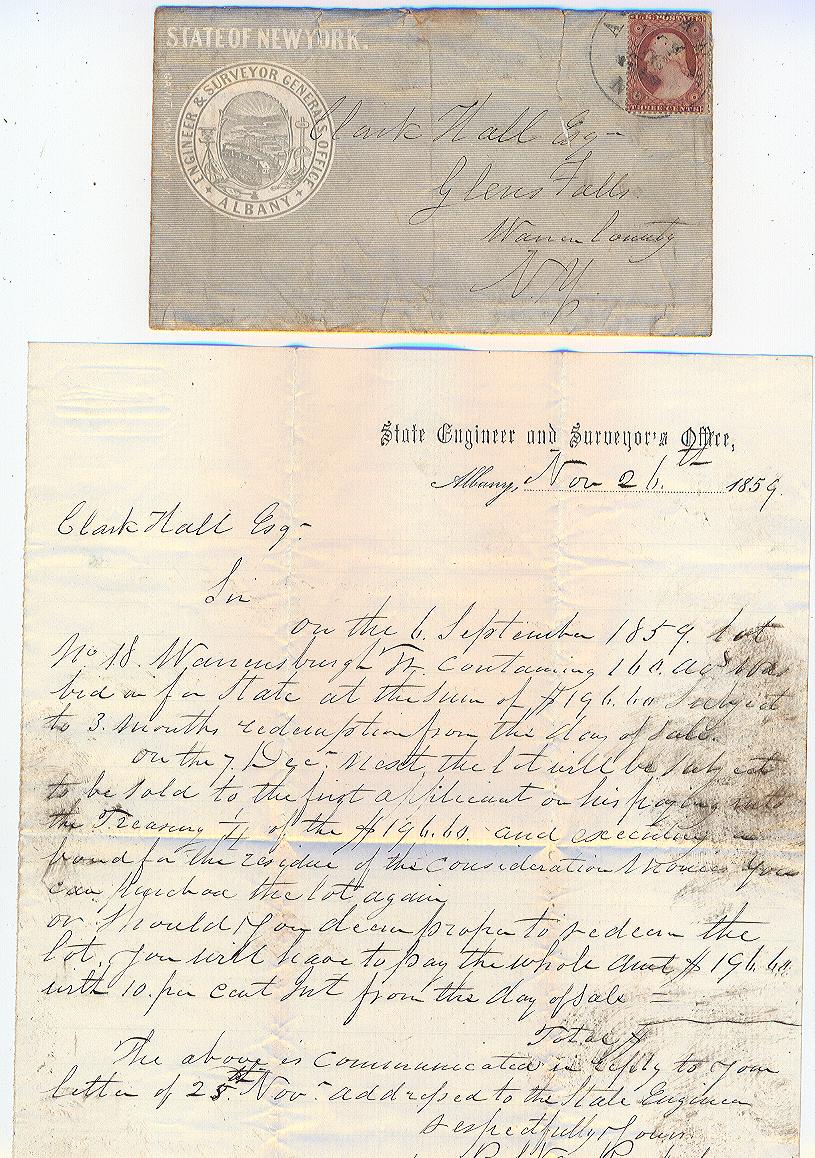 STATE OF NEW YORK.
ENGINEER & SURVEYOR GENERAL'S OFFICE
ALBANY
U.S. POSTAGE
THREE CENTS
Clark Hall Esq
Glens Falls
Warren County
N.Y.
State Engineer and Surveyor's Office,
Albany, Nov 26th 1859.
Clark Hall Esq
Sir
On the 6. September 1859. lot
No 18. Warrensburgh Tr. containing 160. acs was
bid in for State at the sum of $196.60 subject
to 3. months redemption from the day of sale.
On the 7. Dec. next the lot will be subject
to be sold to the first applicant on his paying into
the Treasury ¼ of the $196.60. and executing a
bond for the residue of the consideration Monies You
can purchase the lot again
or should you deem proper to redeem the
lot, you will have to pay the whole amt $196.60.
with 10. per cent Int from the day of sale =
Total $
The above is communicated in reply to your
letter of 25th Nov. addressed to the State Engineer
Respectfully Yours